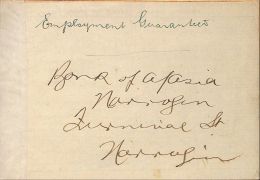 Employment Guarantee
Bank of A/asia
Narrogin
Narrogin